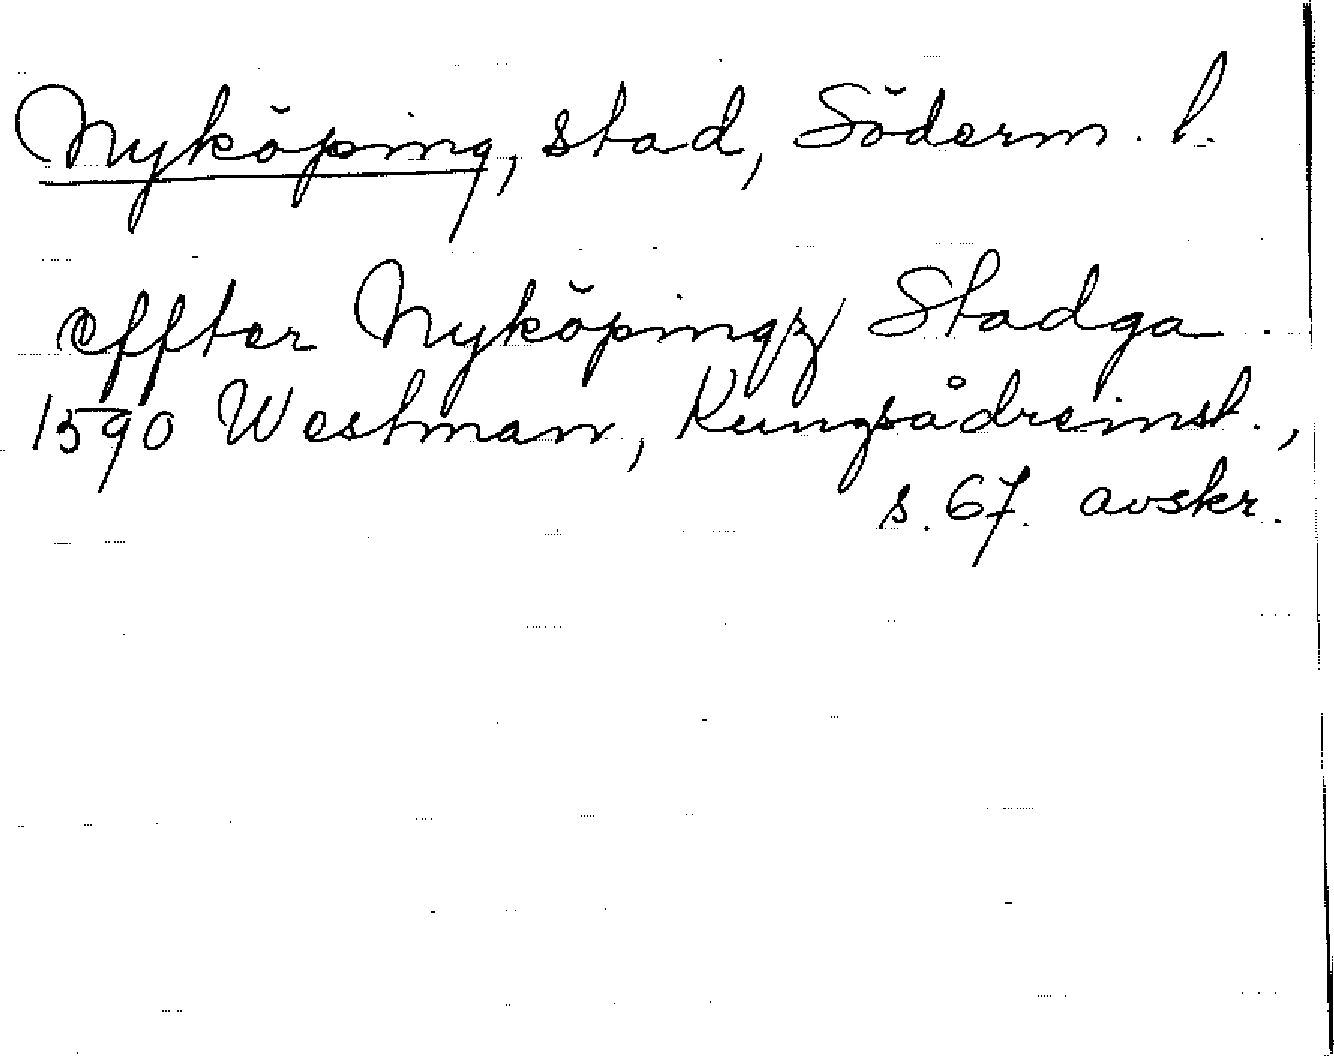 Nyköping, stad, Söderm. l.
effter Nyköpingz Stadga.
1590 Westman, Kungsådreinst.,
s. 67. avskr.